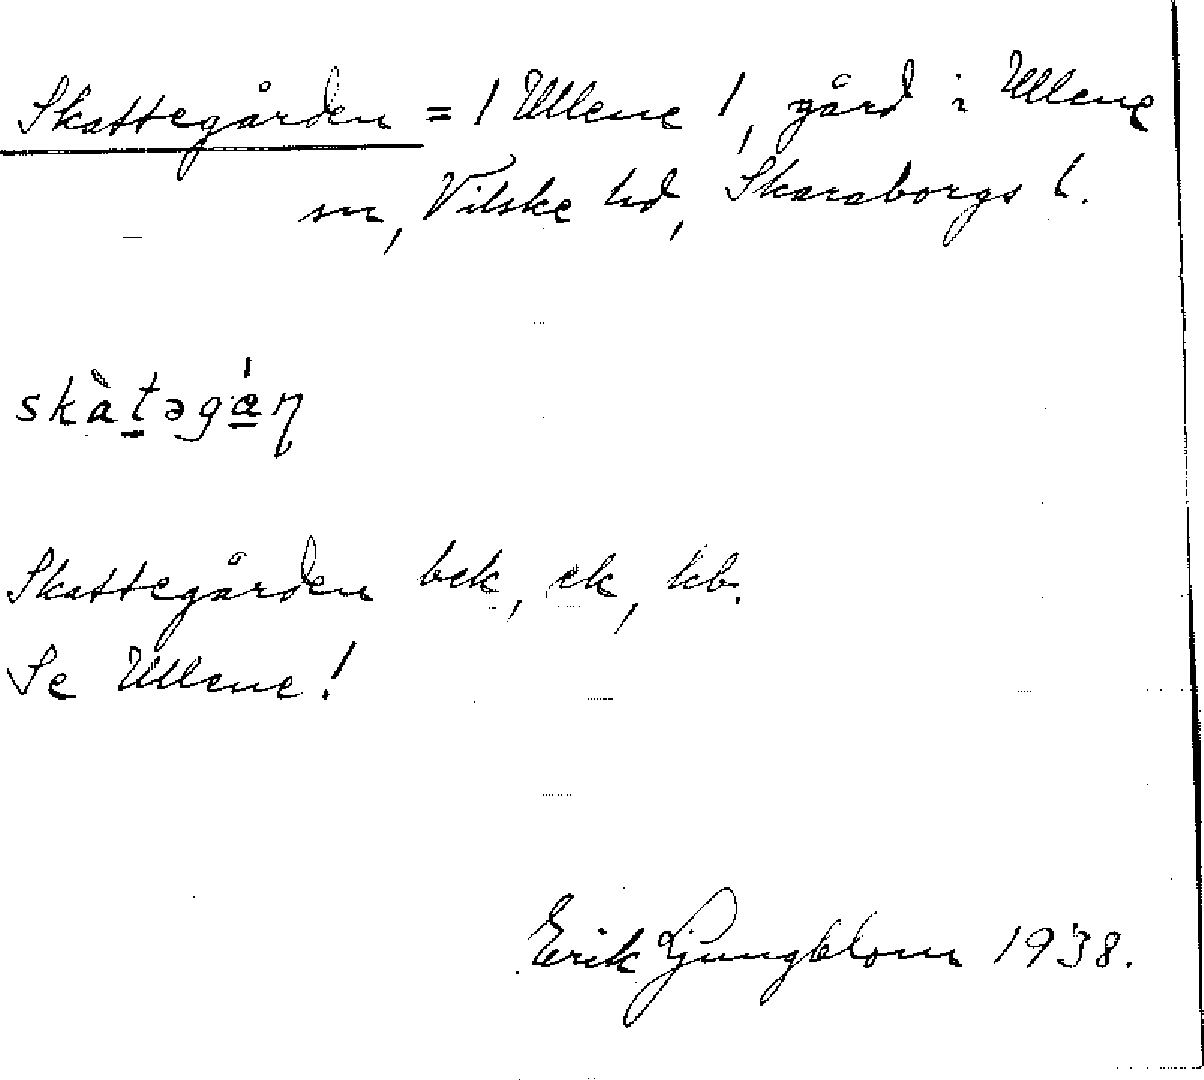 Skattegården = 1 Ullene 1, gård i Ullene
sn, Vilske hd, Skaraborgs l.
skàtəgán
Skattegården bek, ek, kb.
Se Ullene!
Erik Ljungblom 1938.